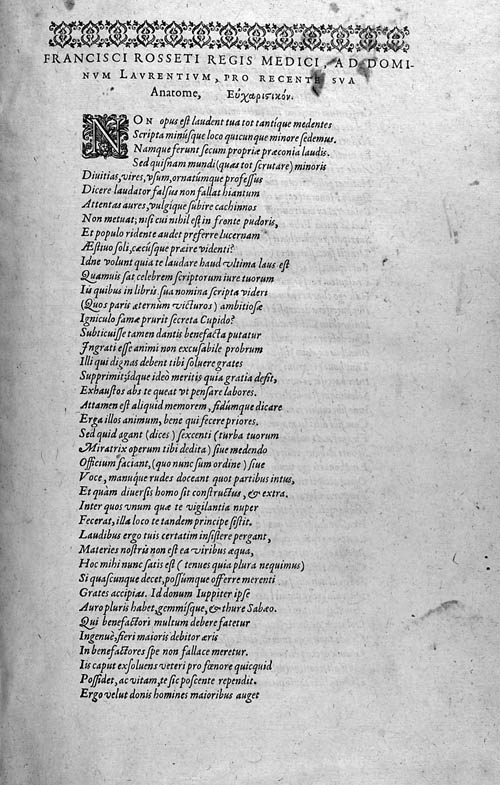 FRANCISCI ROSSETI REGIS MEDICI, AD DOMI-
NVM LAVRENTIVM, PRO RECENTE SVA
Anatome, Εὐχαριστικόν.
NON opus est laudent tua tot tantique medentes
Scripta minúsque loco quicunque minore sedemus.
Namque ferunt secum propriæ præconia laudis.
Sed quisnam mundi (quas tot scrutare) minoris
Diuitias, vires, vsum, ornatúmque professus
Dicere laudator falsus non fallat hiantum
Attentas aures, vulgique subire cachinnos
Non metuat; nisi cui nihil est in fronte pudoris,
Et populo ridente audet præferre lucernam
Æstiuo soli, cæcúsque præire videnti?
Idne volunt quia te laudare haud vltima laus est
Quamuis sat celebrem scriptorum iure tuorum
Iis quibus in libris sua nomina scripta videri
(Quos paris æternum victuros) ambitiosæ
Igniculo famæ prurit secreta Cupido?
Subticuisse tamen dantis benefacta putatur
Ingrati esse animi non excusabile probrum
Illi qui dignas debent tibi soluere grates
Supprimit; idque ideò meritis quia gratia desit,
Exhaustos abs te queat vt pensare labores.
Attamen est aliquid memorem, fidúmque dicare
Erga illos animum, bene qui fecere priores.
Sed quid agant (dices) sexcenti (turba tuorum
Miratrix operum tibi dedita) siue medendo
Officium faciant, (quo nunc sum ordine) siue
Voce, manúque rudes doceant quot partibus intus,
Et quàm diuersis homo sit constructus, & extra.
Inter quos vnum quæ te vigilantia nuper
Fecerat, illa loco te tandem principe sistit.
Laudibus ergo tuis certatim insistere pergant,
Materies nostris non est ea viribus æqua,
Hoc mihi nunc satis est (tenues quia plura nequimus)
Si quascunque decet, possúmque offerre merenti
Grates accipias. Id donum Iuppiter ipse
Auro pluris habet, gemmisque, & thure Sabæo.
Qui benefactori multum debere fatetur
Ingenuè, fieri maioris debitor æris
In benefactores spe non fallace meretur.
Iis caput exsoluens veteri pro fœnore quicquid
Possidet, ac vitam, te sic poscente rependit.
Ergo velut donis homines maioribus auget